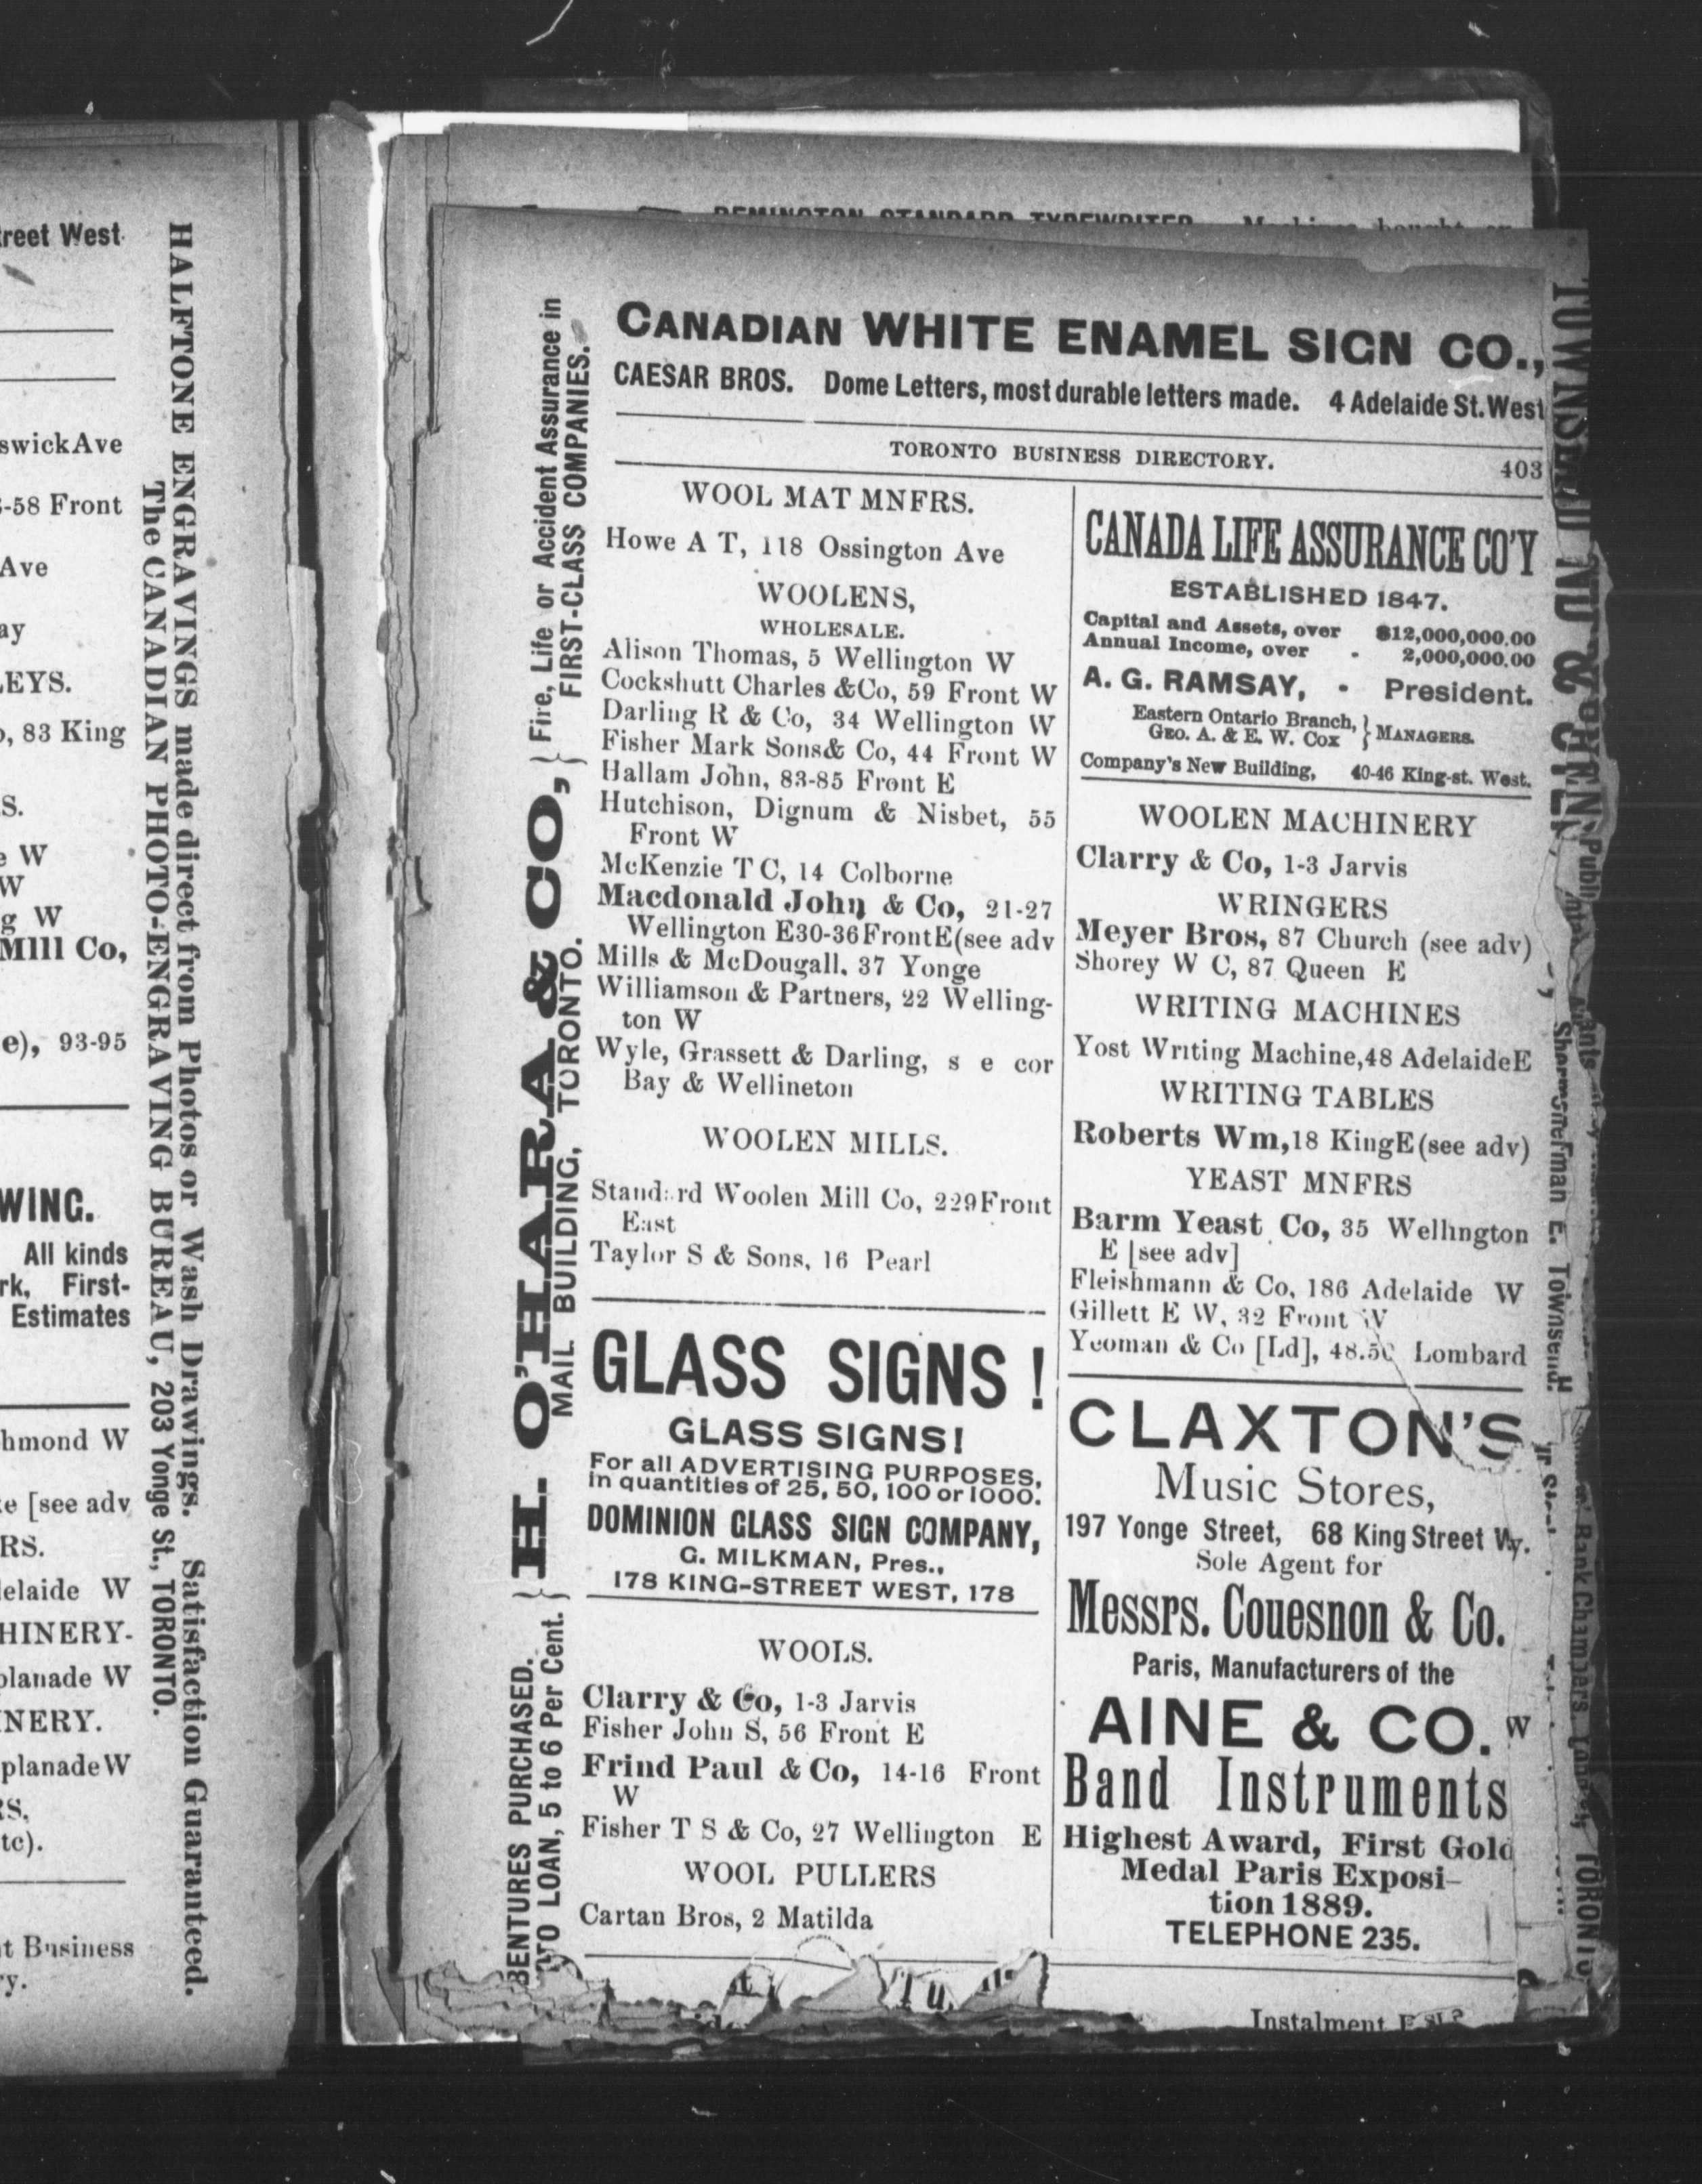 treet West
swickAve
-58 Front
Ave
ay
LEYS.
, 83 King
S.
e W
W
g W
Mill Co,
e), 93-95
WING.
All kinds
rk, First-
Estimates
hmond W
[see adv
RS.
elaide W
HINERY-
planade W
NERY.
planade W
tc).
t Business
y.
HALFTONE ENGRAVINGS made direct from Photos or Wash Drawings. Satisfaction Guaranteed.
The CANADIAN PHOTO-ENGRAVING BUREAU, 203 Yonge St., TORONTO.
REMINGTON STANDARD TYPEWRITER
CANADIAN WHITE ENAMEL SIGN CO.,
CAESAR BROS. Dome Letters, most durable letters made. 4 Adelaide St. West
TORONTO BUSINESS DIRECTORY. 403
Fire, Life or Accident Assurance in
FIRST-CLASS COMPANIES.
H. O'HARA & CO,
MAIL BUILDING, TORONTO.
BENTURES PURCHASED.
TO LOAN, 5 to 6 Per Cent.
WOOL MAT MNFRS.
Howe A T, 118 Ossington Ave
WOOLENS,
WHOLESALE.
Alison Thomas, 5 Wellington W
Cockshutt Charles &Co, 59 Front W
Darling R & Co, 34 Wellington W
Fisher Mark Sons& Co, 44 Front W
Hallam John, 83-85 Front E
Hutchison, Dignum & Nisbet, 55
Front W
McKenzie T C, 14 Colborne
Macdonald John & Co, 21-27
Wellington E30-36FrontE(see adv
Mills & McDougall. 37 Yonge
Williamson & Partners, 22 Welling-
ton W
Wyle, Grassett & Darling, s e cor
Bay & Wellineton
WOOLEN MILLS.
Standard Woolen Mill Co, 229Front
East
Taylor S & Sons, 16 Pearl
GLASS SIGNS!
GLASS SIGNS!
For all ADVERTISING PURPOSES,
in quantities of 25, 50, 100 or 1000.
DOMINION GLASS SIGN COMPANY,
G. MILKMAN, Pres.,
178 KING-STREET WEST, 178
WOOLS.
Clarry & Co, 1-3 Jarvis
Fisher John S, 56 Front E
Frind Paul & Co, 14-16 Front
W
Fisher T S & Co, 27 Wellington E
WOOL PULLERS
Cartan Bros, 2 Matilda
CANADA LIFE ASSURANCE CO'Y
ESTABLISHED 1847.
Capital and Assets, over $12,000,000.00
Annual Income, over - 2,000,000.00
A. G. RAMSAY, - President.
Eastern Ontario Branch,
GEO. A. & E. W. COX } MANAGERS.
Company's New Building, 40-46 King-st. West.
WOOLEN MACHINERY
Clarry & Co, 1-3 Jarvis
WRINGERS
Meyer Bros, 87 Church (see adv)
Shorey W C, 87 Queen E
WRITING MACHINES
Yost Writing Machine,48 AdelaideE
WRITING TABLES
Roberts Wm,18 KingE(see adv)
YEAST MNFRS
Barm Yeast Co, 35 Wellington
E [see adv]
Fleishmann & Co, 186 Adelaide W
Gillett E W, 32 Front W
Yeoman & Co [Ld], 48.50 Lombard
CLAXTON'S
Music Stores,
197 Yonge Street, 68 King Street W.
Sole Agent for
Messrs. Couesnon & Co.
Paris, Manufacturers of the
AINE & CO.
Band Instruments
Highest Award, First Gold
Medal Paris Exposi-
tion 1889.
TELEPHONE 235.
Instalment